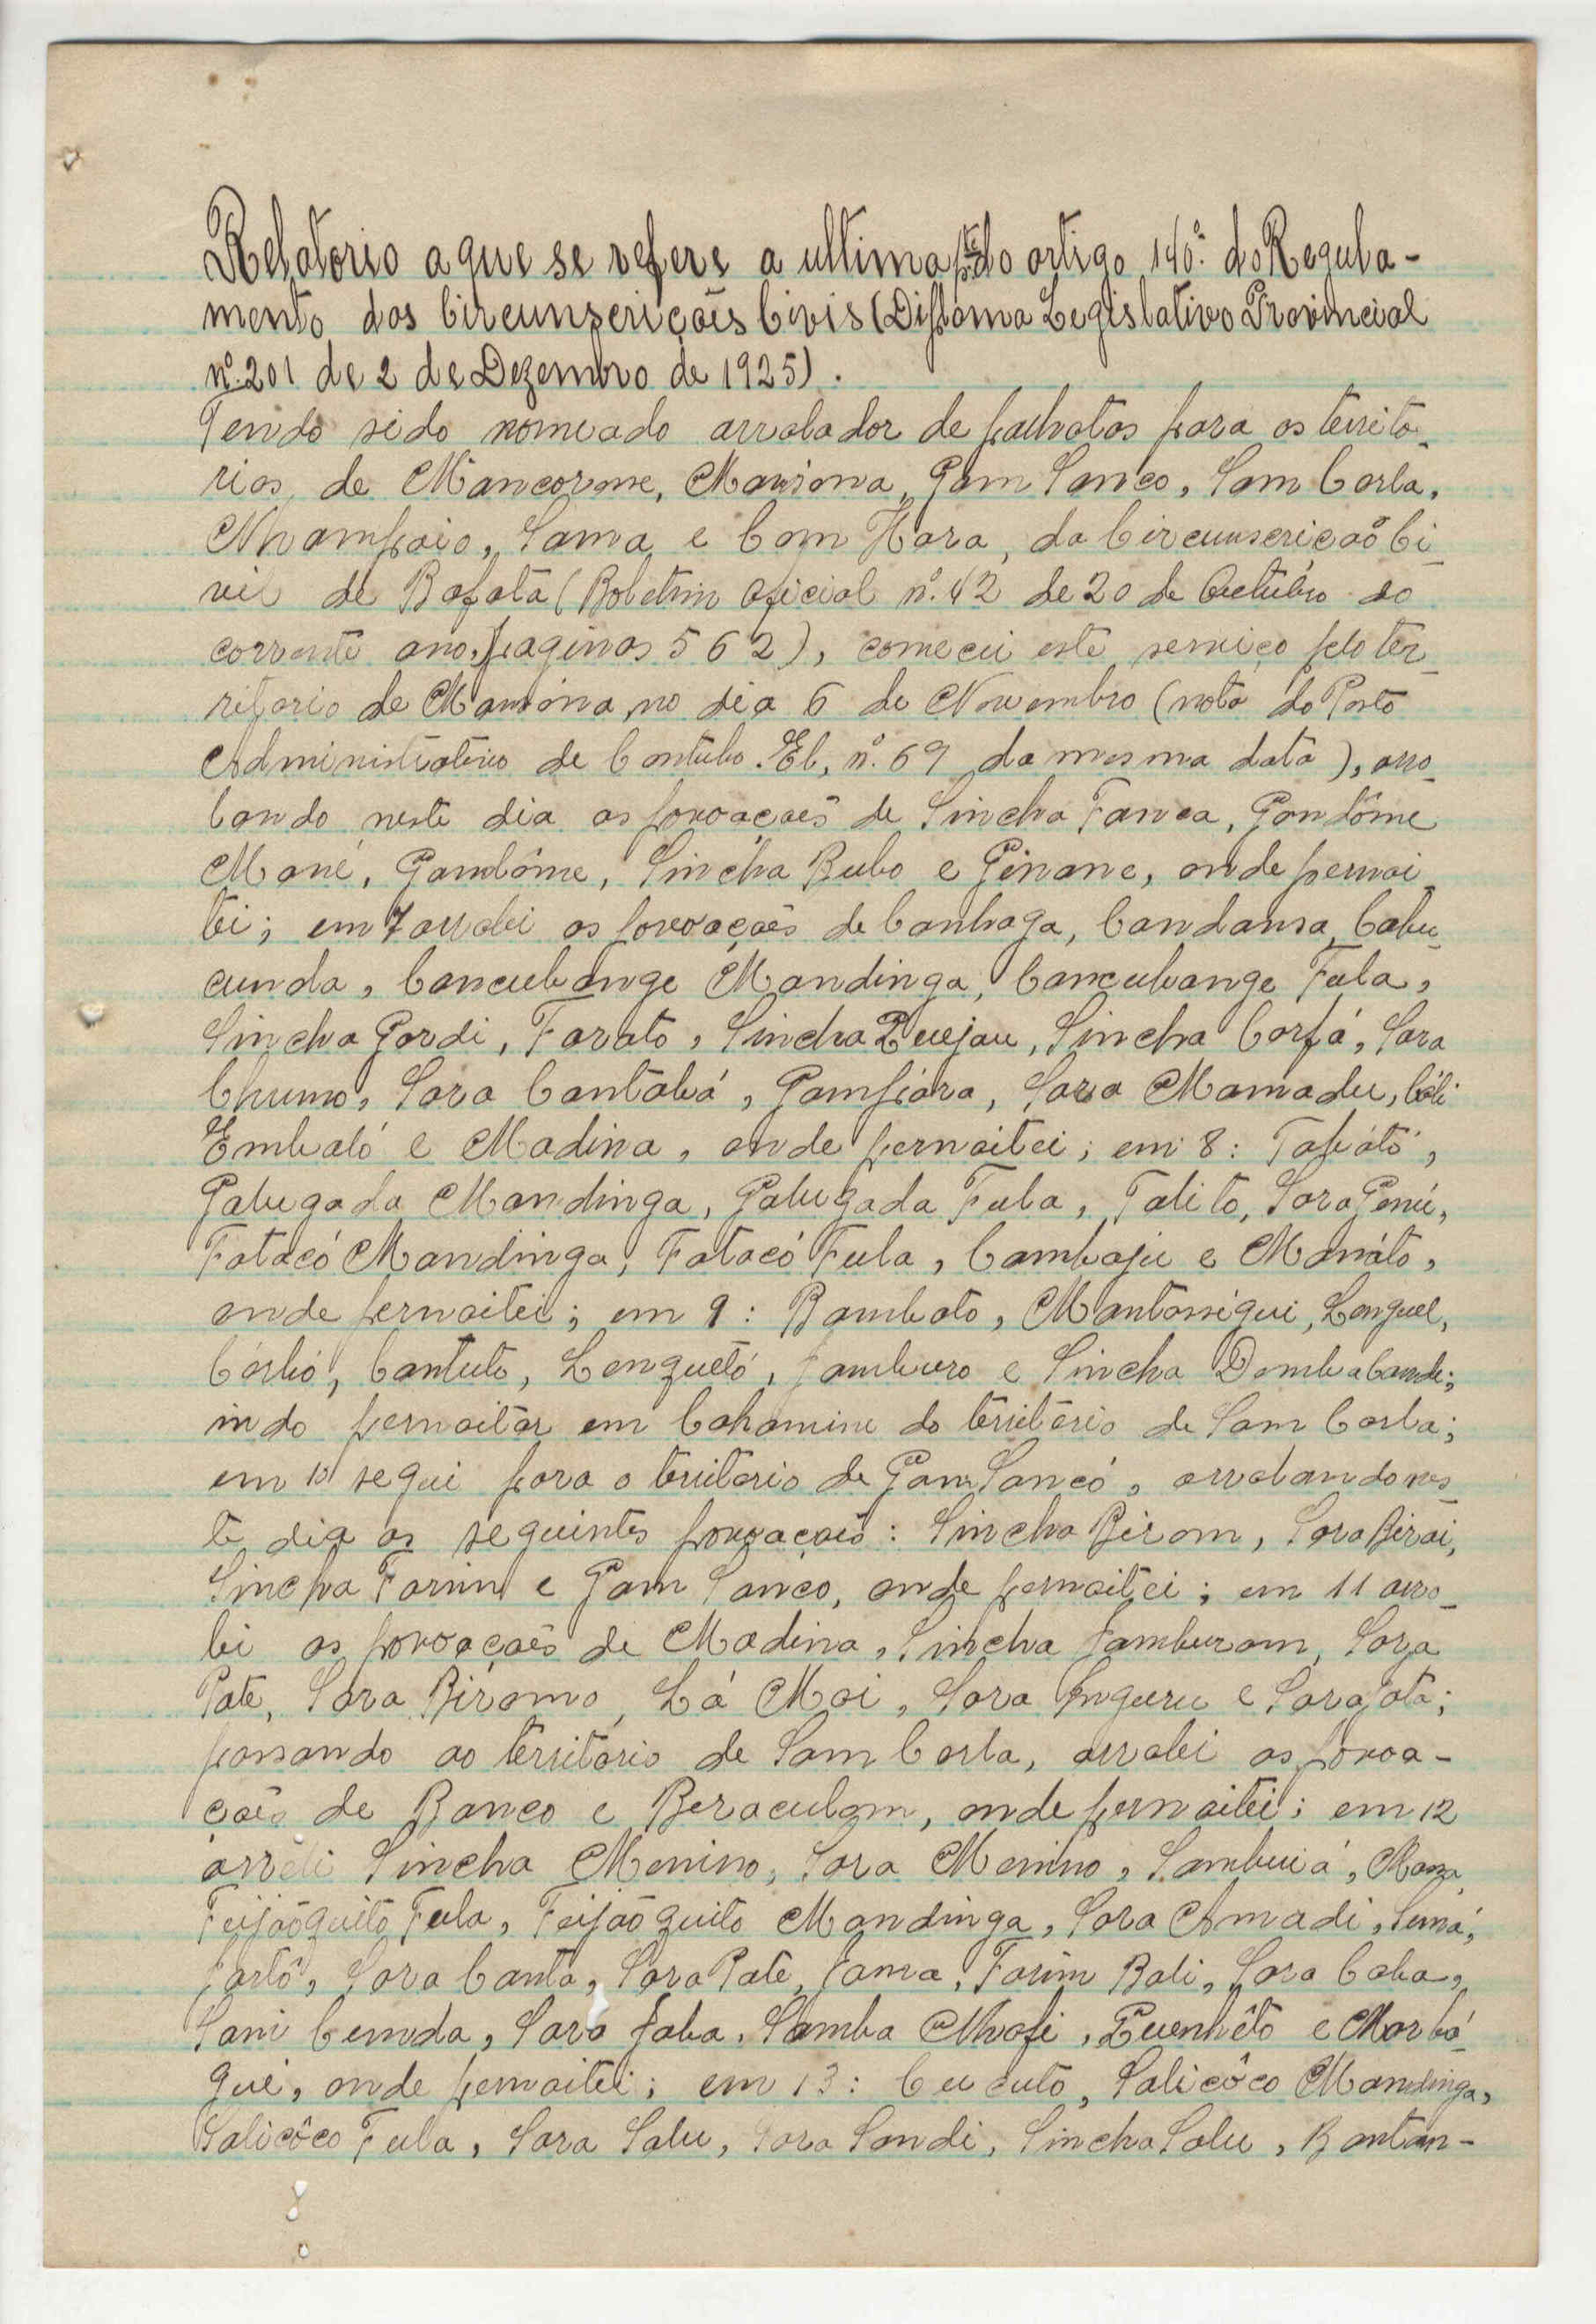 Relatorio a que se refere a ultima pte do artigo 140º do Regula-
mento das Circunscrições Civis (Diploma Legislativo Provincial
nº. 201 de 2 de Dezembro de 1925).
Tendo sido nomeado arrolador de palhotas para os territo-
rios, de Mancorosse, Mansôna, Gam Sanco, Sam Corla,
Nhampaio, Sama e Com Hara, da Circunscrição Ci-
vil de Bafatá (Boletim Oficial nº. 42 de 20 de Outubro do
corrente ano, paginas 562), comecei este serviço pelo ter-
ritorio de Mansôna, no dia 6 de Novembro (nota do Posto
Administrativo de Contubo-El, nº. 69 da mesma data), arro-
lando neste dia as povoações de Sincha Fanca, Gandôme
Mané, Gandôme, Sincha Bubo e Ginane, onde pernoi-
tei; em 7 arrolei as povoações de Canhaga, Candansa, Cabu-
cunda, Canculange Mandinga, Canculange Fula,
Sincha Gordi, Farato, Sincha Quejau, Sincha Corfá, Sara
Chumo, Sara Cantabá, Gampiára, Sara Mamadu, Cóli
Embaló e Madina, onde pernoitei; em 8: Tabátó,
Galugada Mandinga, Galugada Fula, Talito, Sara Genú,
Fatacó Mandinga, Fatacó Fula, Cambaju e Manáto,
onde pernoitei; em 9: Bambato, Mantassigui, Lenguel,
Córbó, Cantuto, Lenguetó, Jamburo e Sincha Demba Cande;
indo pernoitar em Cahamine do territorio de Sam Corla;
em 10 segui para o territorio de Gam Sancó, arrolando nes-
te dia as seguintes povoações: Sincha Birom, Sara Birai,
Sincha Farim e Gam Sanco, onde pernoitei; em 11 arro-
lei as povoações de Madina, Sincha Jamburam, Sara
Pate, Sara Biramo, Lá Moi, Sara Inguru e Sara Jota;
passando ao territorio de Sam Corla, arrolei as povoa-
ções de Banco e Beraculom, onde pernoitei; em 12
arrolei Sincha Menino, Sara Menino, Sambuiá, Mansa
Feijãoquito Fula, Feijãoquito Mandinga, Sara Amadi, Sumá,
Jartô, Sara Canta, Sara Pate, Jama, Farim Bali, Sara Caba,
Sani Cunda, Sara Jaba, Samba Nhafi, Quenhêto e Marbá-
gué, onde pernoitei; em 13: Cucuto, Salicôco Mandinga,
Salicôco Fula, Sara Salu, Sara Sandi, Sincha Salu, Bantan-